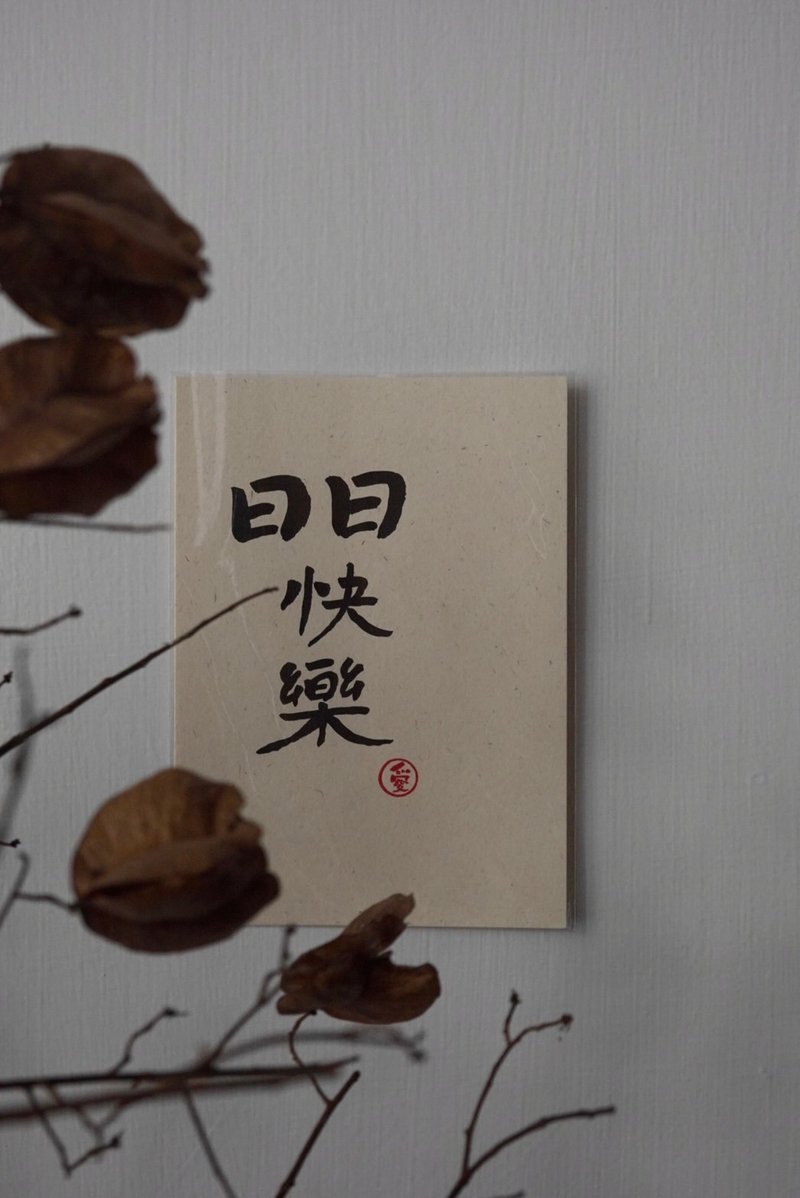 日日
快
樂
愛